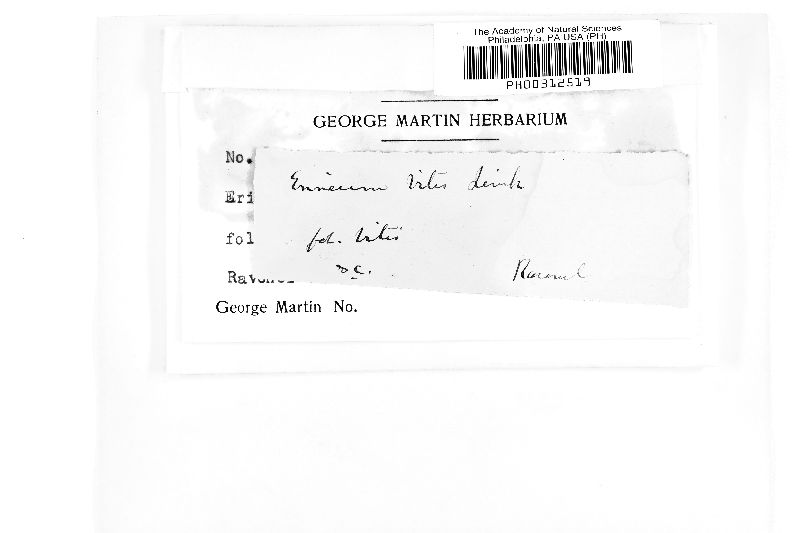 The Academy of Natural Sciences
Philadelphia, PA USA (PH)
PH00312519
GEORGE MARTIN HERBARIUM
No.
Erineum Vitis Link
Eri
fol. Vitis
fol
S C.
Ravenel
Rav
George Martin No.